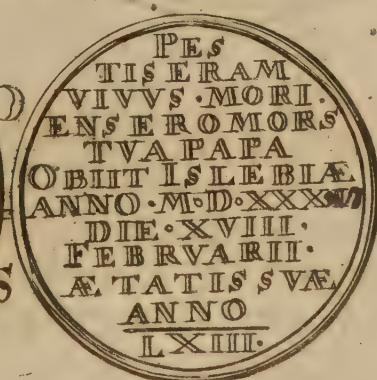 PES
TIS ERAM
VIVVS·MORI·
ENS ERO MORS
TVA PAPA
OBIIT ISLEBIÆ
ANNO·M·D·
DIE·XVIII·
FEBRVARII·
ÆTATIS SVÆ
ANNO
LXIII·